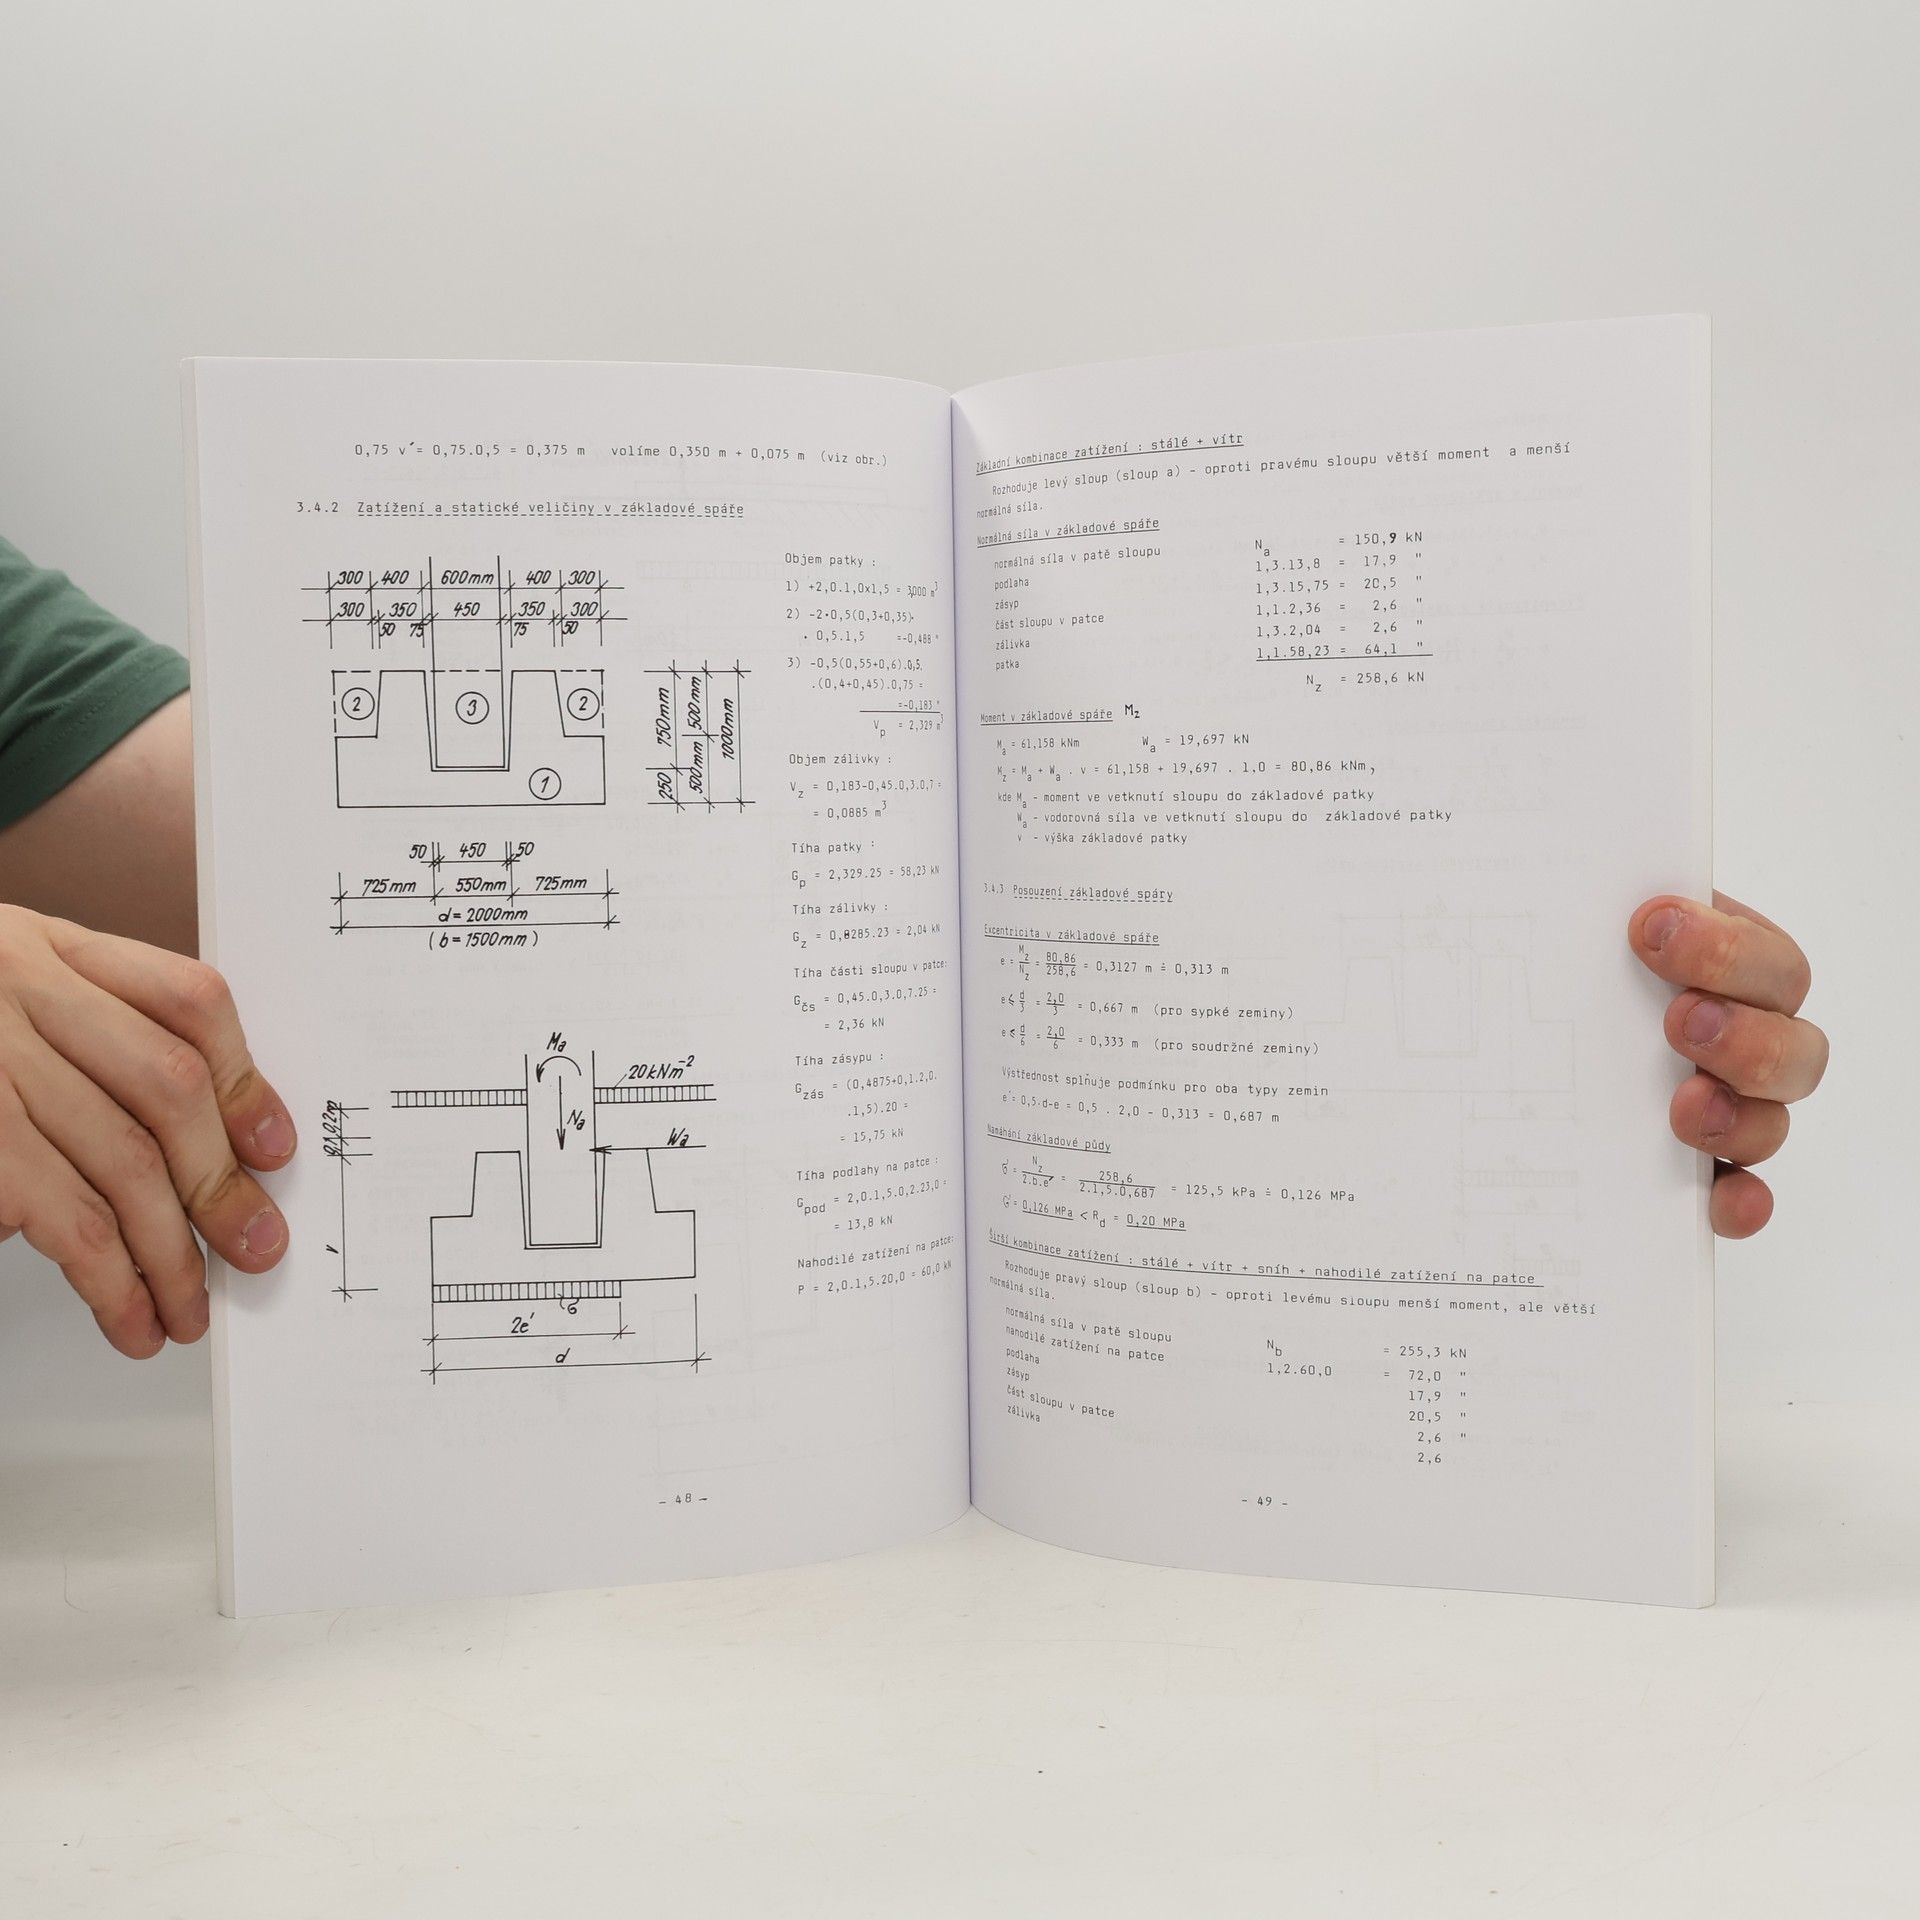 0,75 v´= 0,75.0,5 = 0,375 m   volíme 0,350 m + 0,075 m  (viz obr.)
3.4.2  Zatížení a statické veličiny v základové spáře
300 400 600mm 400 300
300 350 450 350 300
50 75 75 50
2 3 2
1
750mm 500mm
250 500mm 1000mm
50 450 50
725mm 550mm 725mm
d = 2000mm
( b = 1500mm )
Ma
20 kNm⁻²
Na
Wa
v
σ
2e'
d
Objem patky :
1) +2,0.1,0x1,5 = 3,000 m³
2) -2.0,5(0,3+0,35).
. 0,5.1,5   =-0,488 "
3) -0,5(0,55+0,6).0,5.
.(0,4+0,45).0,75 =
=-0,183 "
Vp = 2,329 m³
Objem zálivky :
Vz = 0,183-0,45.0,3.0,7 =
= 0,0885 m³
Tíha patky :
Gp = 2,329.25 = 58,23 kN
Tíha zálivky :
Gz = 0,8285.23 = 2,04 kN
Tíha části sloupu v patce:
Gčs = 0,45.0,3.0,7.25 =
= 2,36 kN
Tíha zásypu :
Gzás = (0,4875+0,1.2,0.
.1,5).20 =
= 15,75 kN
Tíha podlahy na patce :
Gpod = 2,0.1,5.0,2.23,0 =
= 13,8 kN
Nahodilé zatížení na patce:
P = 2,0.1,5.20,0 = 60,0 kN
- 48 -
Základní kombinace zatížení : stálé + vítr
Rozhoduje levý sloup (sloup a) - oproti pravému sloupu větší moment  a menší
normálná síla.
Normálná síla v základové spáře
normálná síla v patě sloupu   Na = 150,9 kN
podlaha   1,3.13,8 = 17,9 "
zásyp   1,3.15,75 = 20,5 "
část sloupu v patce   1,1.2,36 = 2,6 "
zálivka   1,3.2,04 = 2,6 "
patka   1,1.58,23 = 64,1 "
Nz = 258,6 kN
Moment v základové spáře  Mz
Ma = 61,158 kNm   Wa = 19,697 kN
Mz = Ma + Wa . v = 61,158 + 19,697 . 1,0 = 80,86 kNm,
kde Ma - moment ve vetknutí sloupu do základové patky
Wa - vodorovná síla ve vetknutí sloupu do  základové patky
v  - výška základové patky
3.4.3  Posouzení základové spáry
Excentricita v základové spáře
e = Mz/Nz = 80,86/258,6 = 0,3127 m ≐ 0,313 m
e ≤ d/3 = 2,0/3 = 0,667 m  (pro sypké zeminy)
e ≤ d/6 = 2,0/6 = 0,333 m  (pro soudržné zeminy)
Výstřednost splňuje podmínku pro oba typy zemin
e´= 0,5.d-e = 0,5 . 2,0 - 0,313 = 0,687 m
Namáhání základové půdy
σ = Nz/2.b.e´ = 258,6/2.1,5.0,687 = 125,5 kPa ≐ 0,126 MPa
σ = 0,126 MPa < Rd = 0,20 MPa
Širší kombinace zatížení : stálé + vítr + sníh + nahodilé zatížení na patce
Rozhoduje pravý sloup (sloup b) - oproti levému sloupu menší moment, ale větší
normálná síla.
normálná síla v patě sloupu   Nb = 255,3 kN
nahodilé zatížení na patce   1,2.60,0 = 72,0 "
podlaha   17,9 "
zásyp   20,5 "
část sloupu v patce   2,6 "
zálivka   2,6
- 49 -